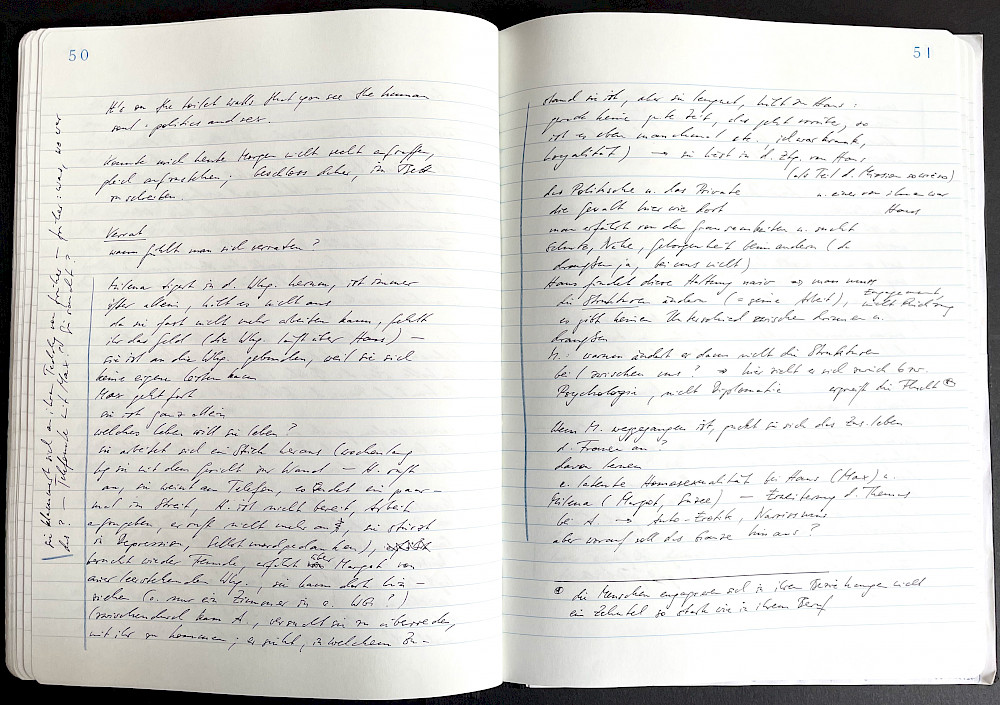 50
It's on the toilet walls that you see the human
soul - politics and sex.
Konnte mich heute Morgen nicht recht aufraffen,
gleich aufzustehen; beschloss daher, im Bett
zu schreiben.
Verrat
wann fühlt man sich verraten?
Milena tigert in d. Whg. herum, ist immer
öfter allein, hält es nicht aus
da sie fast nicht mehr arbeiten kann, fehlt
ihr das Geld (die Whg. läuft über Hans) –
sie ist an die Whg. gebunden, weil sie sich
keine eigene leisten kann
Max geht fort
sie ist ganz allein
welches Leben will sie leben?
sie arbeitet sich ein Stück heraus (wochenlang
lag sie mit dem Gesicht zur Wand – H. ruft
an, sie weint am Telefon, es endet ein paar-
mal im Streit, H. ist nicht bereit, Arbeit
aufzugeben, er ruft nicht mehr an, sie stürzt
in Depression, Selbstmordgedanken),
braucht wieder Freunde, erfährt über Margot von
einer leerstehenden Whg., sie kann dort hin-
ziehen (o. nur ein Zimmer in e. WG?)
(zwischendurch kam H., versucht sie zu überreden,
mit ihr zu kommen; er sieht, in welchem Zu-
sie klammert sich an ihren Teddy von früher – früher: was, wo war
das? – Telefonate mit Max
51
stand sie ist, aber sie leugnet, hilft zu Hans:
gerade keine gute Zeit, das geht vorüber, so
ist es eben manchmal etc., ich war krank,
Loyalität) → sie liest in d. Ztg. von Hans
(als Teil d. Mission
u. einer von ihnen war
Hans
das Politische u. das Private
die Gewalt hier wie dort
man erfährt von den Grausamkeiten u. sucht
Schutz, Nähe, Geborgenheit beim andern (da
draußen ja, bei uns nicht)
Hans findet diese Haltung naiv → man muss
die Strukturen ändern (= seine Arbeit), Engagement,
es gibt keinen Unterschied zwischen drinnen u.
draußen
M.: warum ändert er dann nicht die Strukturen
bei / zwischen uns? → hier zieht er sich zurück bzw.
Psychologie, nicht Diplomatie ergreift die Flucht ⊛
Wenn M. weggegangen ist, guckt sie sich das Zus.leben
d. Frauen an?
davon lernen
e. latente Homosexualität bei Hans (Max) u.
Milena (Margot, – Erweiterung d. Themas
bei A. → Auto-Erotik, Narzissmus
aber worauf soll das Ganze hinaus?
⊛ die Menschen engagieren sich in ihren Beziehungen nicht
ein Zehntel so stark wie in ihrem Beruf